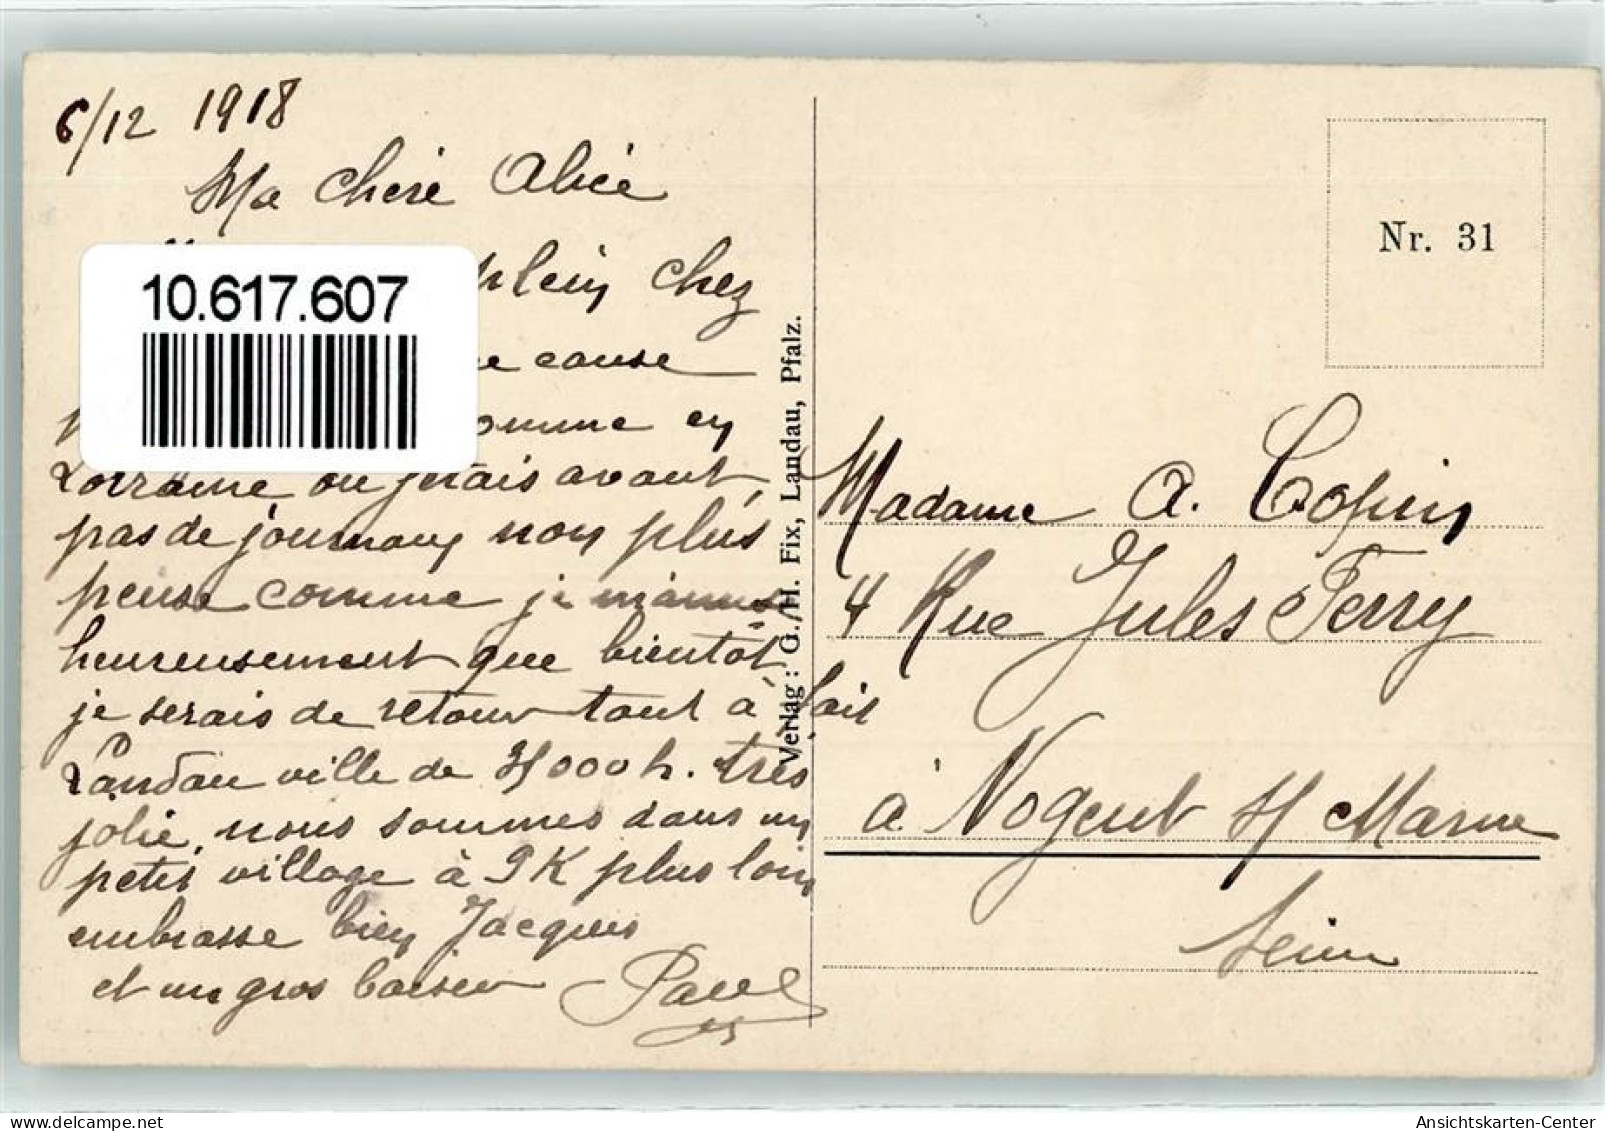 6/12 1918
Ma chère Alice
plein chez
10.617.607
cause
comme en
Lorraine ou j'etais avant,
pas de journaux non plus
pense comme je
heureusement que bientôt
je serais de retour tout à fait
Landau ville de 000 h. très
jolie, nous sommes dans un
petit village à 9 K plus loin
embrasse bien Jacques
et un gros baiser Paul
Verlag: G. H. Fix, Landau, Pfalz.
Nr. 31
Madame A. Copin
4 Rue Jules Ferry
à Nogent s/ Marne
Seine
Ansichtskarten-Center